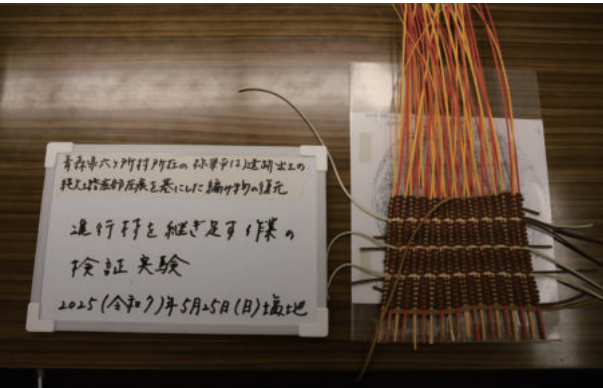 青森県六ヶ所村所在の弥栄平(1)遺跡出土の
縄文土器底部圧痕を基にした編み物の復元
進行材を継ぎ足す作業の
検証実験
2025(令和7)年5月25日(日)塩地